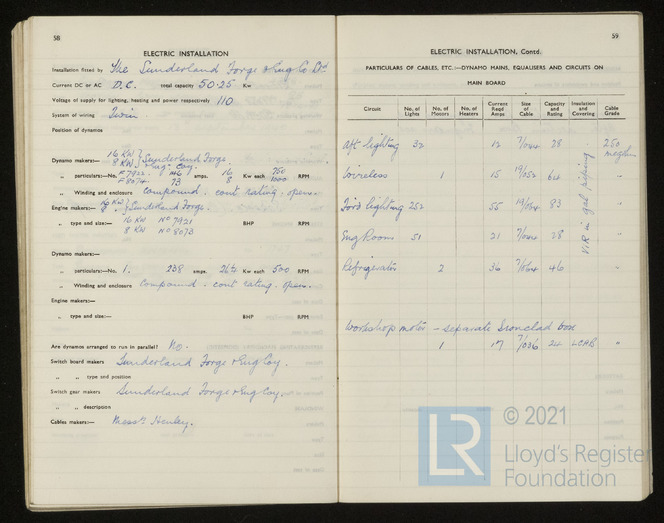 58
ELECTRIC INSTALLATION
Installation fitted by The Sunderland Forge & Eng Co Ltd
Current DC or AC D.C. Total capacity 50·25 Kw
Voltage of supply for lighting, heating and power respectively 110
System of wiring Twin
Position of dynamos
Dynamo makers:— 16 KW } Sunderland Forge
8 KW } Eng. Coy.
„ particulars:—No. F7922 146 amps. 16 Kw each 750 RPM
F8074 73 8 1000
„ Winding and enclosure Compound. cont rating. open.
Engine makers:— 16 KW } Sunderland Forge.
8 "
„ type and size:— 16 KW No 7921 BHP RPM
8 KW No 8073
Dynamo makers:—
„ particulars:—No 1. 238 amps. 26¼ Kw each 500 RPM
„ Winding and enclosure Compound - cont rating. open.
Engine makers:—
„ type and size:— BHP RPM
Are dynamos arranged to run in parallel? No.
Switch board makers Sunderland Forge & Eng Coy.
„ „ type and position
Switch gear makers Sunderland Forge & Eng Coy.
„ „ description
Cables makers:— Messrs Henley.
59
ELECTRIC INSTALLATION, Contd.
PARTICULARS OF CABLES, ETC.:—DYNAMO MAINS, EQUALISERS AND CIRCUITS ON
MAIN BOARD
Circuit No. of Lights No. of Motors No. of Heaters Current Reqd Amps Size of Cable Capacity and Rating Insulation and Covering Cable Grade
Aft lighting 32 12 7/044 28 250 megohm
Wireless 1 15 19/052 64 "
Ford lighting 252 55 19/064 83 "
Eng Room 51 21 7/044 28 "
Refrigerator 2 36 7/064 46 "
VIR in gal piping
Workshop motor - separate Ironclad box
1 17 7/036 24 LCAB "
LR
© 2021
Lloyd's Register
Foundation